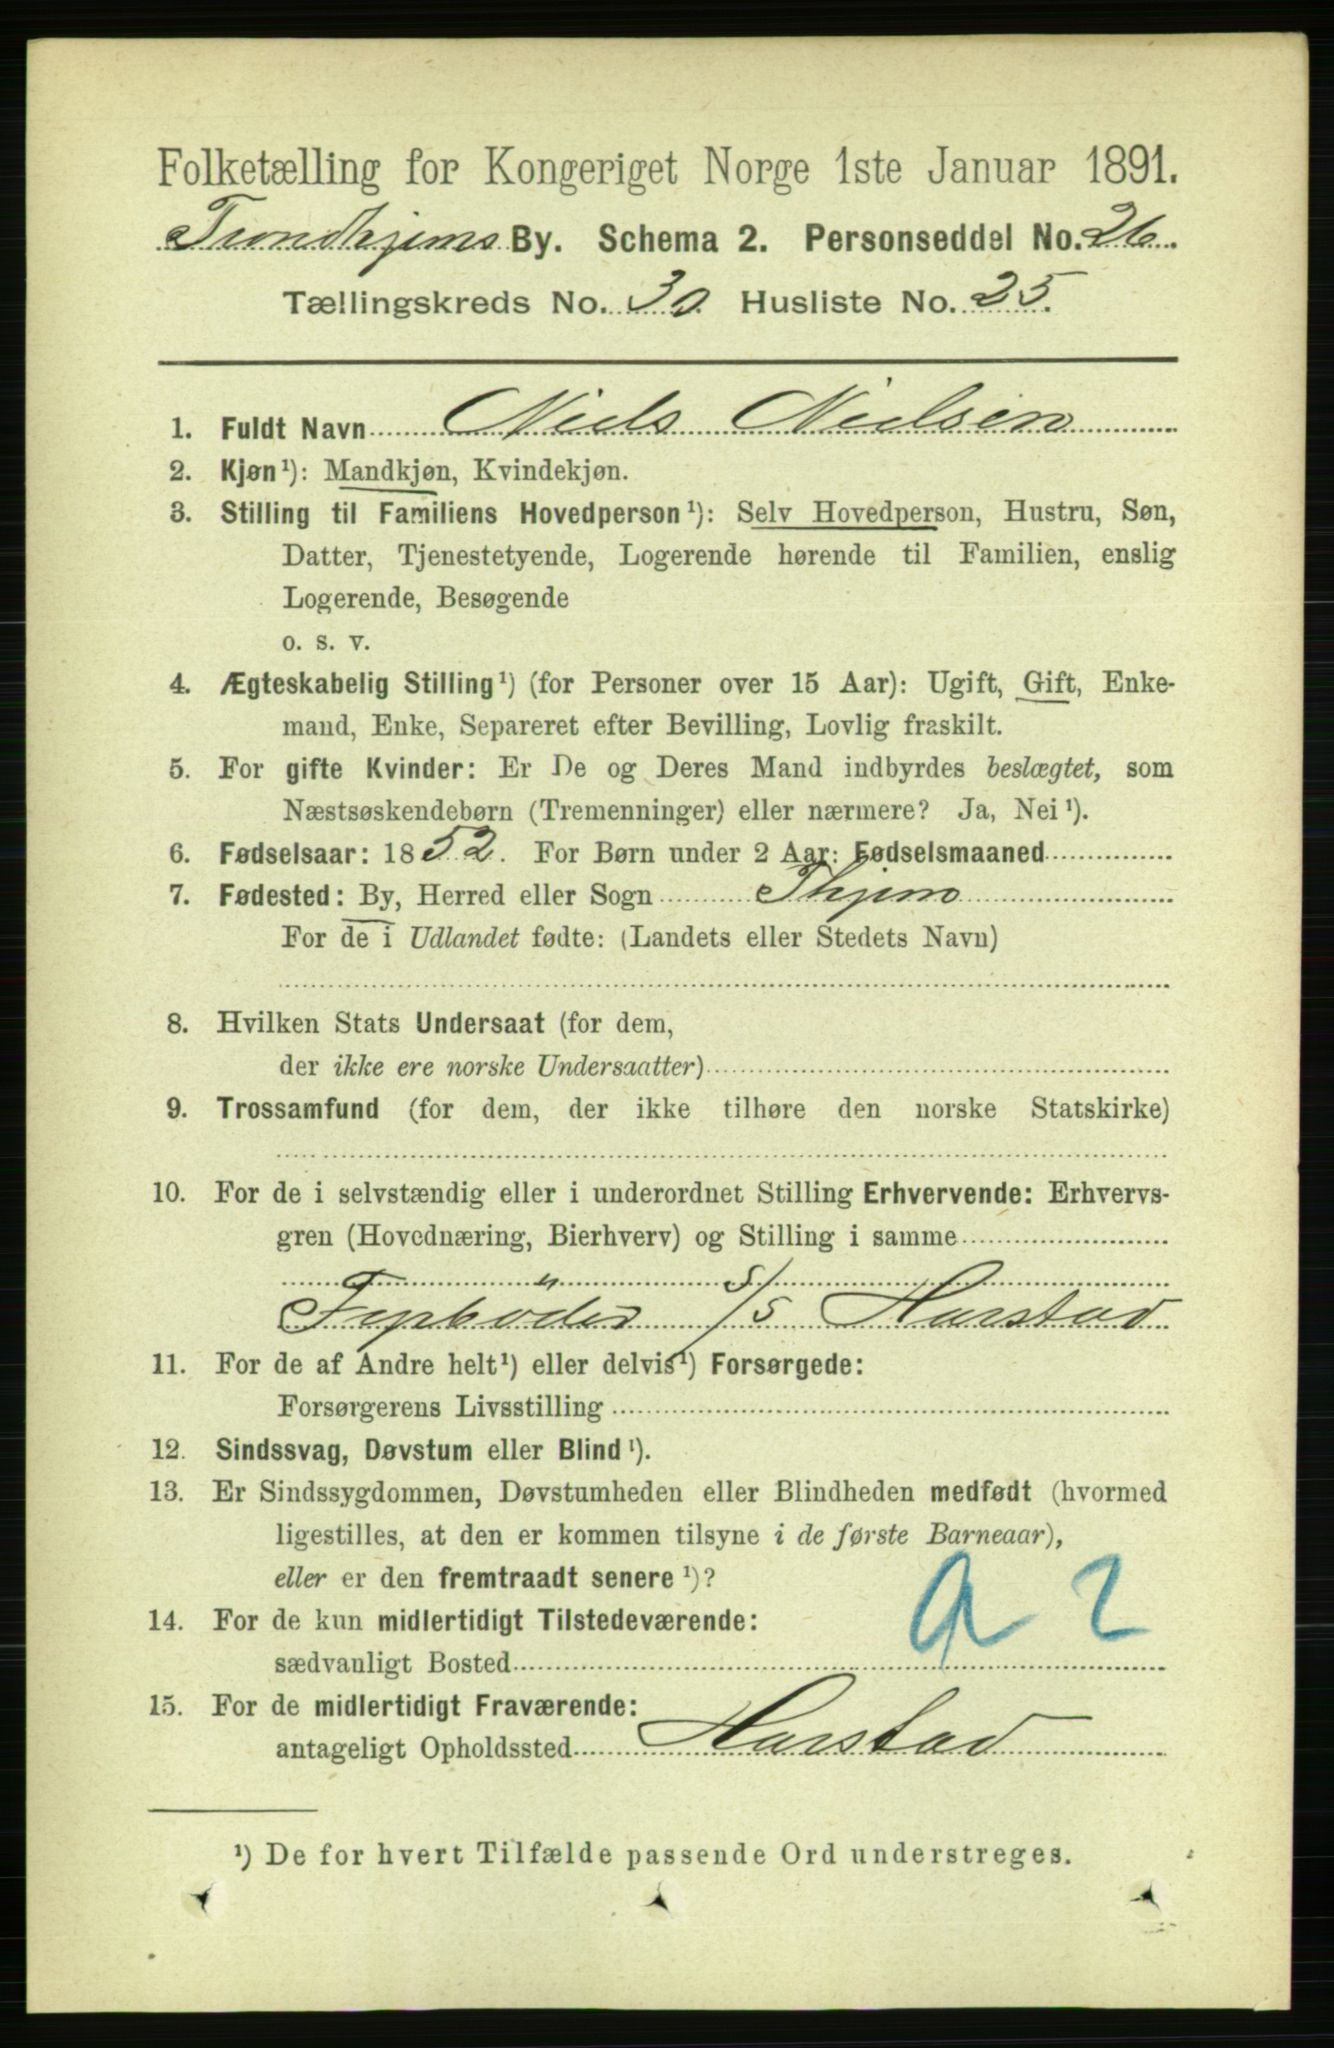 Folketælling for Kongeriget Norge 1ste Januar 1891.
Trondhjems By. Schema 2. Personseddel No. 26.
Tællingskreds No. 30 Husliste No. 25.
1. Fuldt Navn Niels Nielsen
2. Kjøn¹): Mandkjøn, Kvindekjøn.
3. Stilling til Familiens Hovedperson¹): Selv Hovedperson, Hustru, Søn,
Datter, Tjenestetyende, Logerende hørende til Familien, enslig
Logerende, Besøgende
o. s. v.
4. Ægteskabelig Stilling¹) (for Personer over 15 Aar): Ugift, Gift, Enke-
mand, Enke, Separeret efter Bevilling, Lovlig fraskilt.
5. For gifte Kvinder: Er De og Deres Mand indbyrdes beslægtet, som
Næstsøskendebørn (Tremenninger) eller nærmere? Ja, Nei¹).
6. Fødselsaar: 1852. For Børn under 2 Aar: Fødselsmaaned
7. Fødested: By, Herred eller Sogn Thjem
For de i Udlandet fødte: (Landets eller Stedets Navn)
8. Hvilken Stats Undersaat (for dem,
der ikke ere norske Undersaatter)
9. Trossamfund (for dem, der ikke tilhøre den norske Statskirke)
10. For de i selvstændig eller i underordnet Stilling Erhvervende: Erhvervs-
gren (Hovednæring, Bierhverv) og Stilling i samme
Fyrböder S/S Harstad
11. For de af Andre helt¹) eller delvis¹) Forsørgede:
Forsørgerens Livsstilling
12. Sindssvag, Døvstum eller Blind¹).
13. Er Sindssygdommen, Døvstumheden eller Blindheden medfødt (hvormed
ligestilles, at den er kommen tilsyne i de første Barneaar),
eller er den fremtraadt senere¹)?
a 2
14. For de kun midlertidigt Tilstedeværende:
sædvanligt Bosted
15. For de midlertidigt Fraværende:
antageligt Opholdssted Harstad
¹) De for hvert Tilfælde passende Ord understreges.